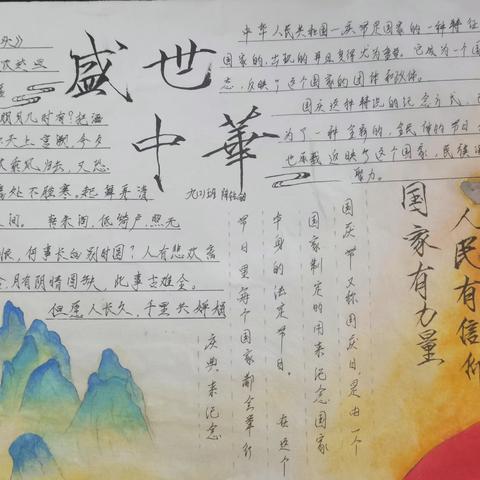 盛世
中華
头》
明月几时有?把酒
天上宫阙,今夕
乘风归去,又恐
高处不胜寒。起舞弄清
人间。 转朱阁,低绮户,照无
恨,何事长向别时圆?人有悲欢离
月有阴晴圆缺,此事古难全。
但愿人长久,千里共婵娟
中华人民共和国一庆节是国家的一种特征
国家的,出现的并且变得尤为重要。它成为一个国
态,反映了这个国家的国体和政体。
国庆这种特殊的纪念方式,
为了一种全新的,全民
也承载反映了这个国家,民族
聚力。
人民有信仰
国家有力量
国庆节又称国庆日,是由一个
国家制定的用来纪念国家
本身的法定节日。 在这个
节日里每个国家都会举行
庆典来纪念